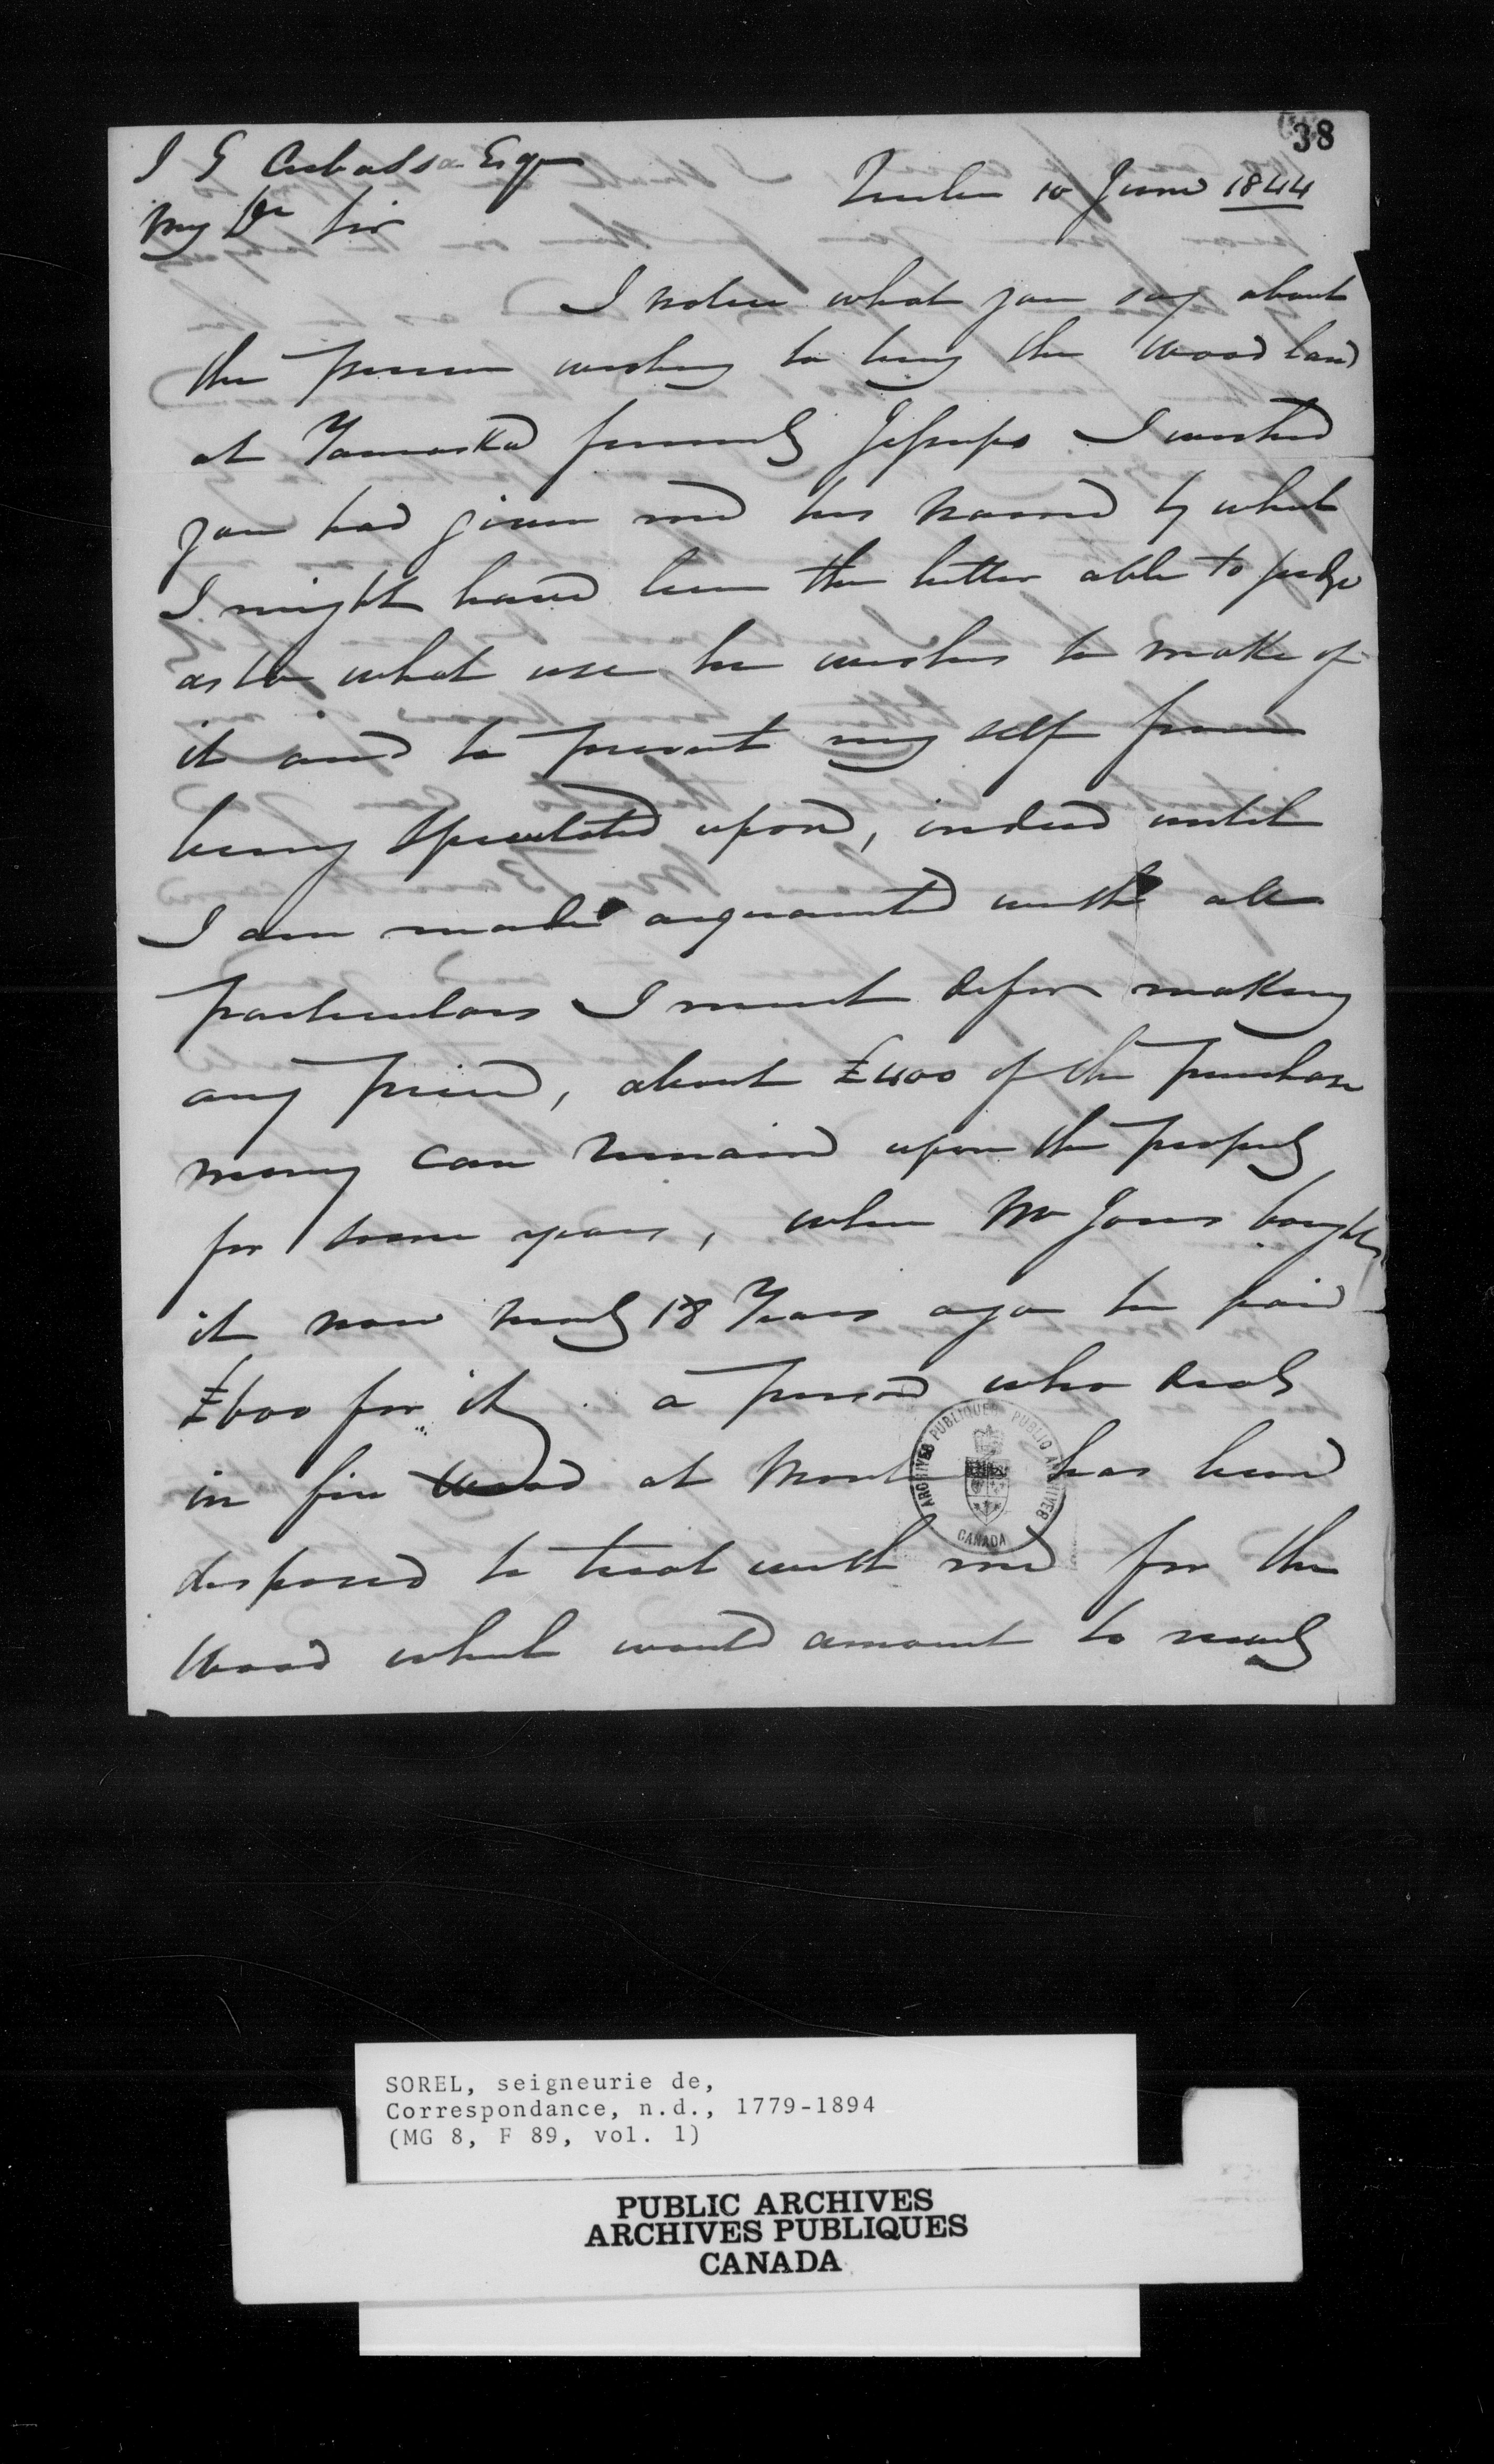 38
J G Crebassa Esqr
Quebec 10 June 1844
My Dr Sir
I notice what you say about
the person wishing to buy the Wood land
at Yamaska formerly Jessups I wished
you had given me his name by what
I might have been the better able to judge
as to what use he wishes to make of
it and to prevent my self from
being speculated upon, indeed until
I am made acquainted with all
particulars I must defer making
any price, about £400 of the purchase
money can remain upon the property
for some years, when Mr Jones bought
it now nearly 18 Years ago he paid
£600 for it. a person who deals
in fire wood at Montreal has been
disposed to treat with me for the
Wood which would amount to nearly
ARCHIVES PUBLIQUES PUBLIC ARCHIVES
CANADA
SOREL, seigneurie de,
Correspondance, n.d., 1779-1894
(MG 8, F 89, vol. 1)
PUBLIC ARCHIVES
ARCHIVES PUBLIQUES
CANADA